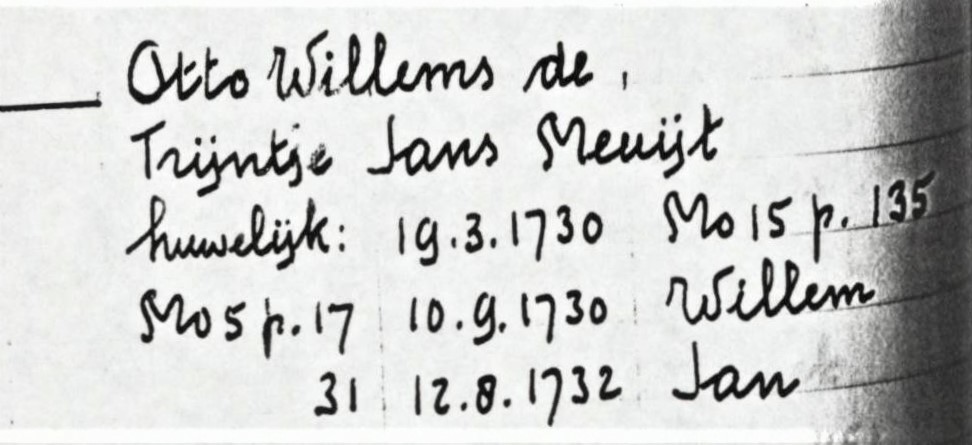 Otto Willems de,
Trijntje Jans Meuijt
huwelijk: 19.3.1730 Mo 15 p. 135
Mo 5 p. 17 10.9.1730 Willem
31 12.8.1732 Jan